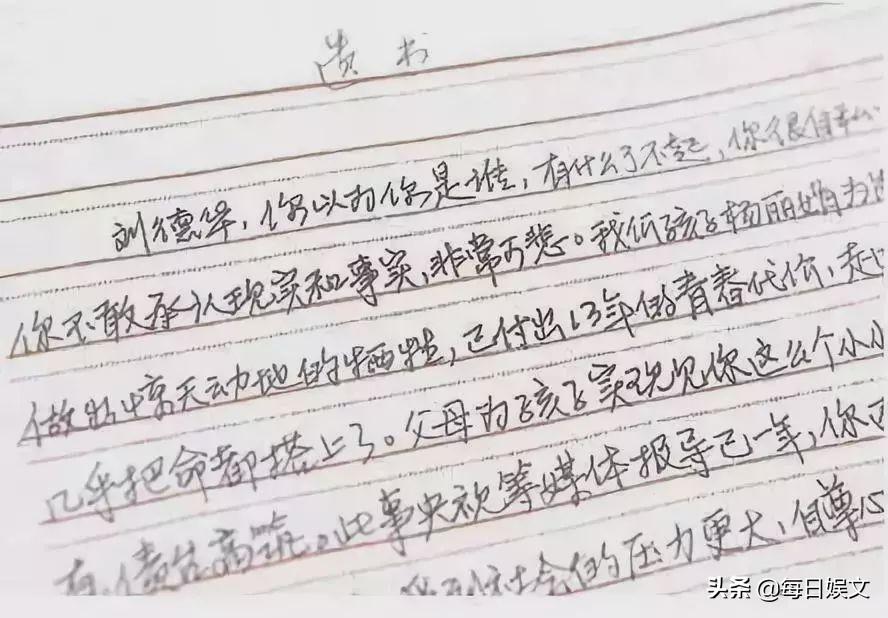 遗书
刘德华，你以为你是谁，有什么了不起，你很自私
你不敢承认现实和事实，非常可悲。我们孩子杨丽娟为
做出惊天动地的牺牲，已付出13年的青春代价，
几乎把命都搭上了。父母为孩子实现见你这么个小小
债台高筑。此事央视等媒体报导已一年，你
社会的压力更大，自尊心
头条 @每日娱文